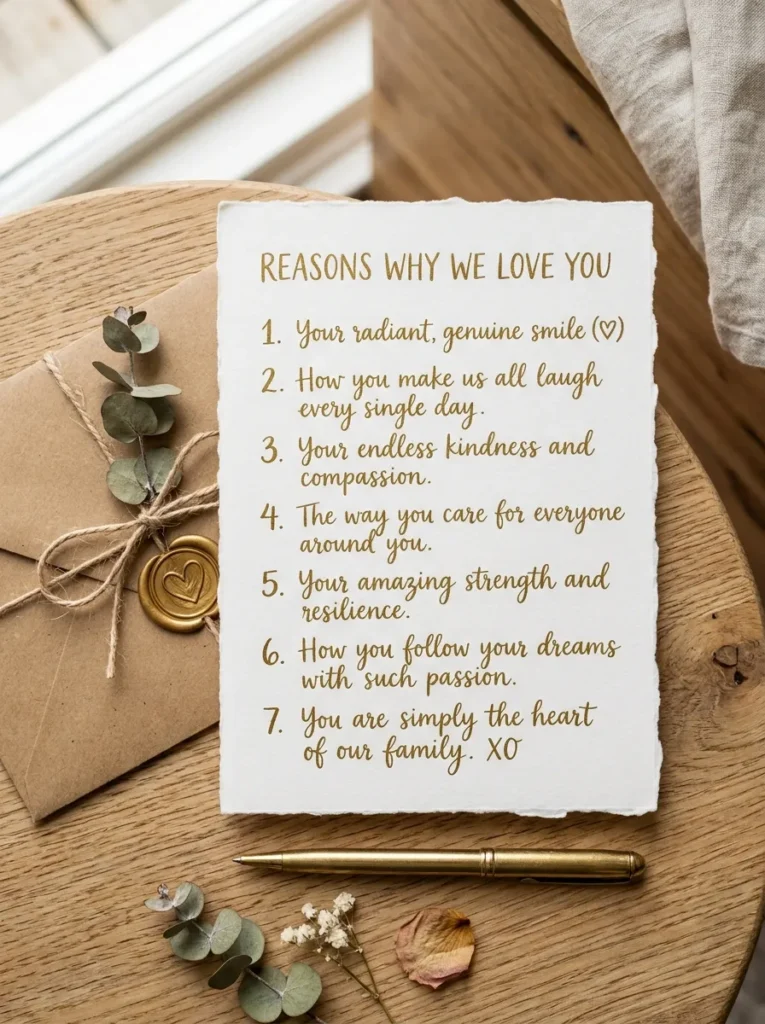 REASONS WHY WE LOVE YOU
1. Your radiant, genuine smile (♡)
2. How you make us all laugh
every single day.
3. Your endless kindness and
compassion.
4. The way you care for everyone
around you.
5. Your amazing strength and
resilience.
6. How you follow your dreams
with such passion.
7. You are simply the heart
of our family. XO